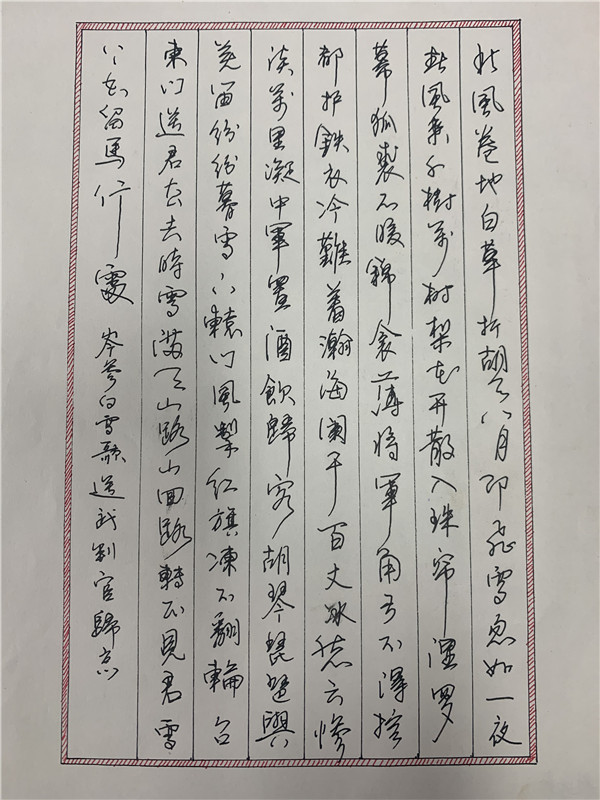 北風卷地白草折胡天八月即飛雪忽如一夜
春風來千樹萬樹梨花開散入珠帘濕羅
幕狐裘不暖錦衾薄將軍角弓不得控
都护鉄衣冷難着瀚海闌干百丈冰愁云慘
淡萬里凝中軍置酒飲歸客胡琴琵琶與
羌笛紛紛暮雪下轅門風掣紅旗凍不翻輪台
東门送君去去時雪滿天山路山回路轉不見君雪
上空留馬行處 岑參白雪歌送武判官歸京